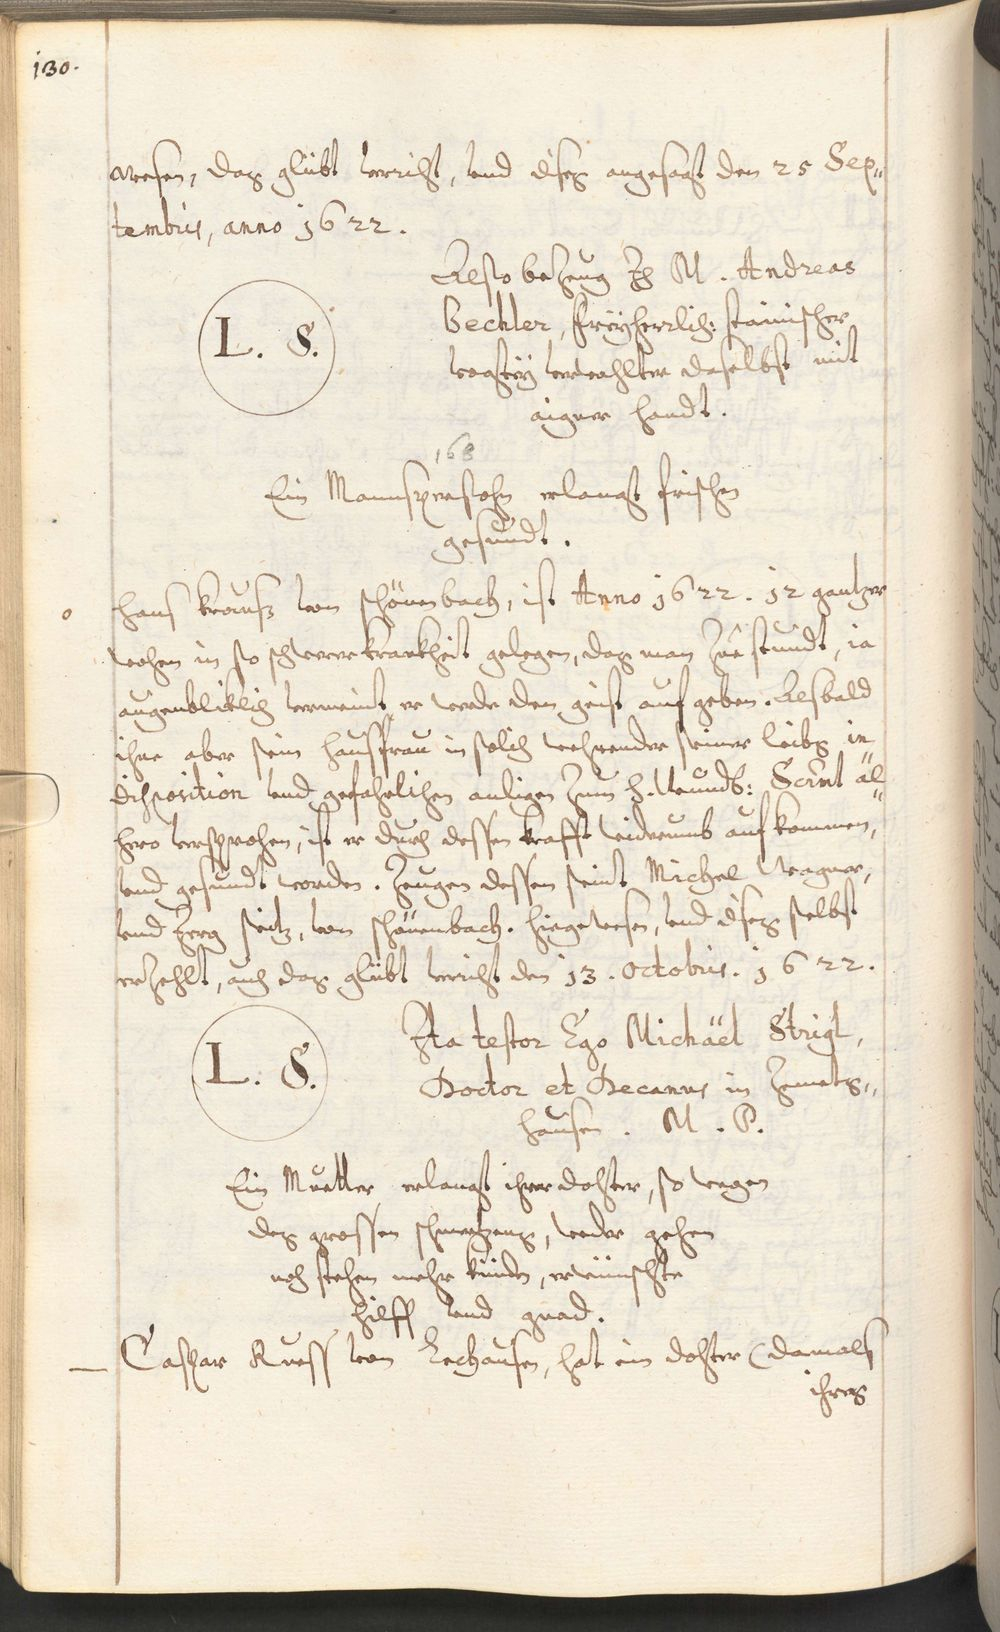 130.
wesen, das glübt verricht, vnd dises angesagt den 25 Sep„
tembris, anno 1622.
Also bezeug Ich M. Andreas
Bechler, freyherrlich: stainischer
vogtey verwahlter daselbst mit
aigner handt.
L. S.
168
Ein Mannspersohn erlangt frischen
gesundt.
Hans Krauß von schönenbach, ist Anno 1622. 12 gantzer
wochen in so schwerer krankheit gelegen, das man Zue stundt, ia
augenbliklich vermeint er werde den geist auf geben. Alsbald
ihne aber sein hausfrau in solch wehrender seiner leibs in„
disposition vnd gefahrlichen anligen Zum H. Scrint al„
hero versprochen, ist er durch dessen krafft widerumb auf kommen,
vnd gesundt worden. Zeugen dessen seint Michel Wagner,
vnd Jerg seitz, von schönenbach. hiegewesen, vnd dises selbst
erzehlt, auch das glübt verricht den 13. octobris. 1622.
L. S.
Ita testor Ego Michäel Strigl,
Doctor et Decanus in Zemets„
hausen. M. P.
Ein Muetter erlangt ihrer dochter, so wegen
des grossen schmertzens, weder gehen
noch stehen mehr künden, erwünschte
hilff vnd gnad.
Caspar Ruess von Lechausen, hat ein dochter (damals
ihres